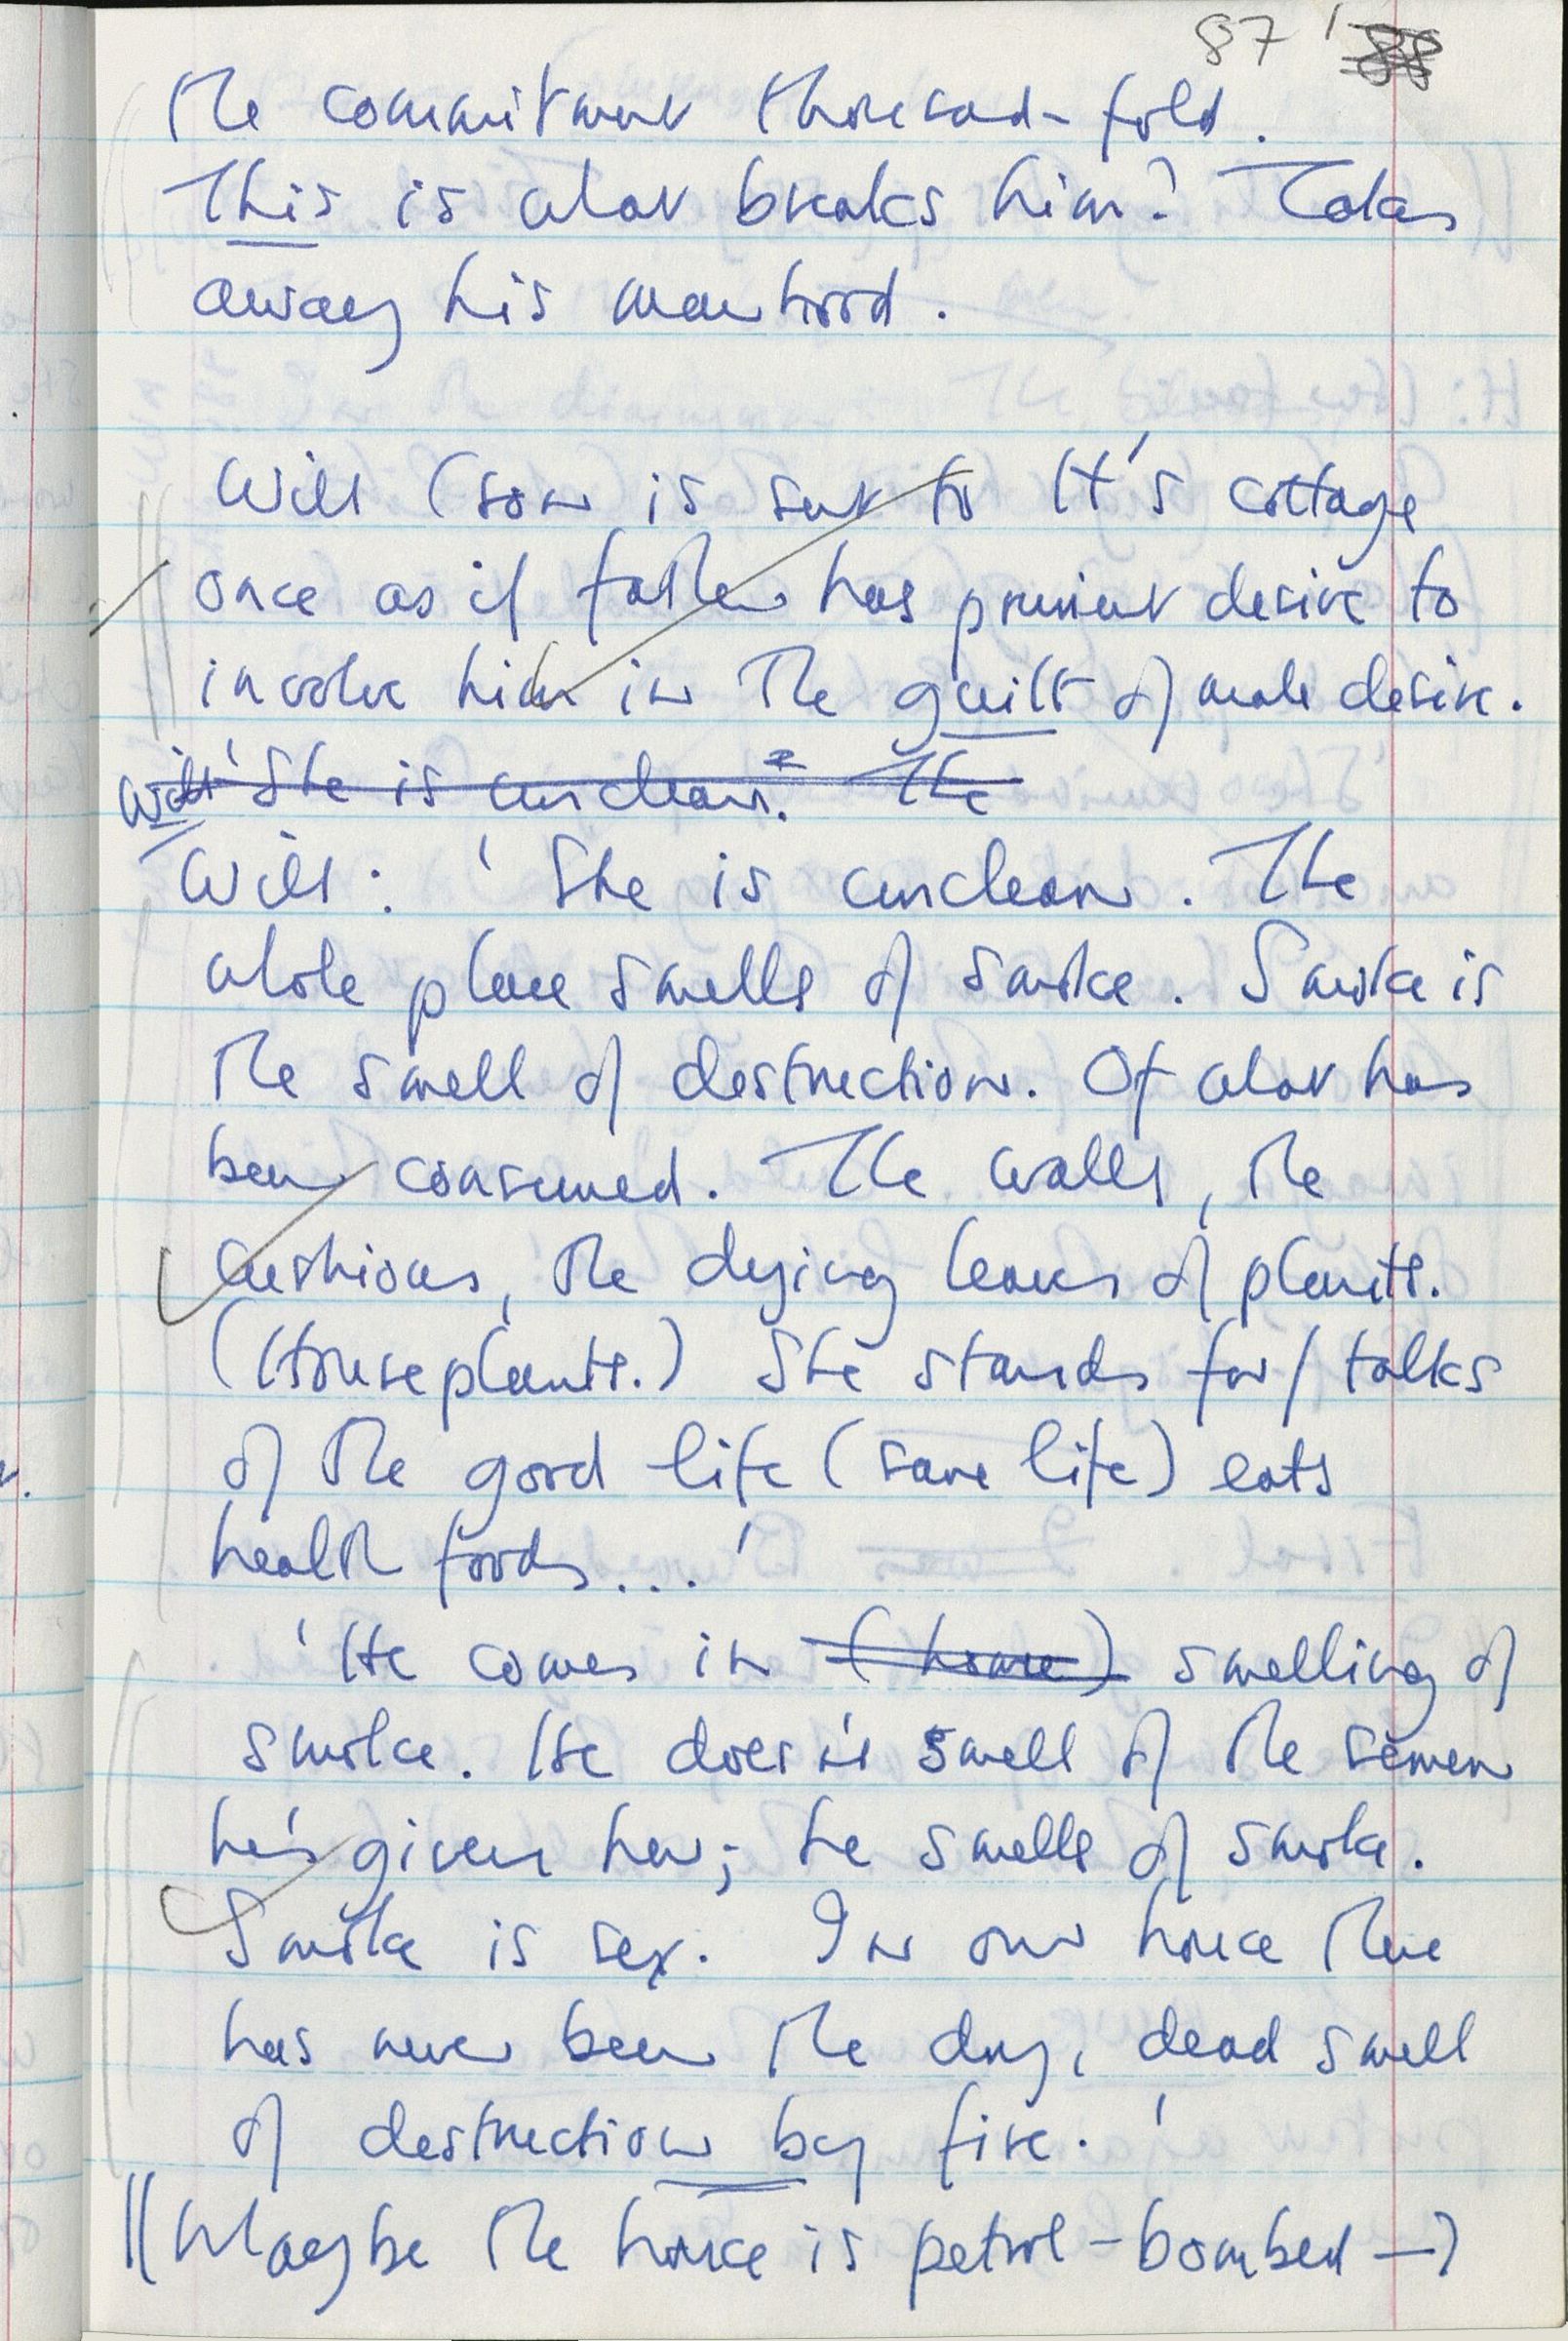 87 88
the commitment thousand-fold.
This is what breaks him? Takes
away his manhood.
Will (son is sent to H's cottage
once as if father has prurient desire to
involve him in the guilt of male desire.
Will 'She is unclean. The
Will: 'She is unclean. The
whole place smells of smoke. Smoke is
the smell of destruction. Of what has
been consumed. The walls, the
cushions, the dying leaves of plants.
(House plants.) She stands for/talks
of the good life (save life) eats
health foods...'
'He comes in (home) smelling of
smoke. He doesn't smell of the semen
he's given her; he smells of smoke.
Smoke is sex. In our house there
has never been the dry, dead smell
of destruction by fire.'
Maybe the house is petrol-bombed →